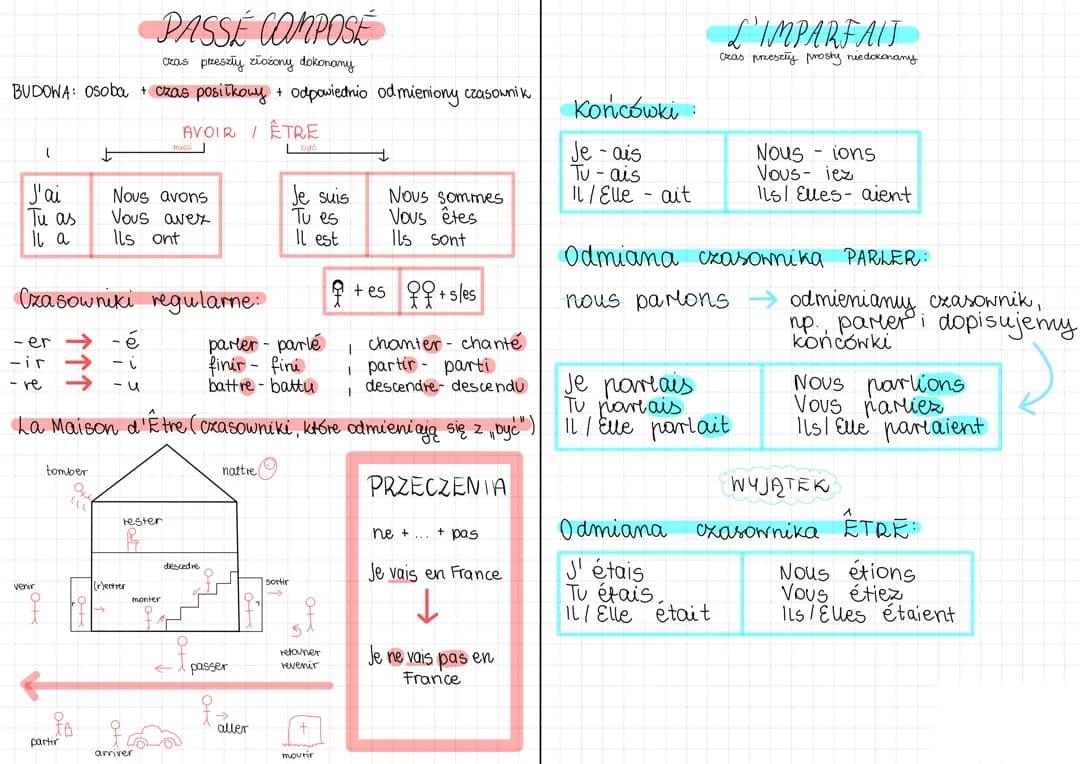 PASSÉ COMPOSÉ
czas przeszły złożony dokonany
BUDOWA: osoba + czas posiłkowy + odpowiednio odmieniony czasownik
AVOIR / ÊTRE
mieć być
J'ai
Tu as
Il a
Nous avons
Vous avez
Ils ont
Je suis
Tu es
Il est
Nous sommes
Vous êtes
Ils sont
+ es
+ s/es
Czasowniki regularne:
-er → -é
-ir → -i
-re → -u
parler - parlé
finir - fini
battre - battu
chanter - chanté
partir - parti
descendre - descendu
La Maison d'Être (czasowniki, które odmieniają się z „być")
tomber
naître
rester
descedre
venir
(r)entrer
monter
sortir
passer
retourner
revenir
partir
arriver
aller
mourir
PRZECZENIA
ne + ... + pas
Je vais en France
Je ne vais pas en
France
L'IMPARFAIT
czas przeszły prosty niedokonany
Końcówki:
Je - ais
Tu - ais
Il / Elle - ait
Nous - ions
Vous - iez
Ils / Elles - aient
Odmiana czasownika PARLER:
nous parlons → odmieniamy czasownik,
np. parler i dopisujemy
końcówki
Je parlais
Tu parlais
Il / Elle parlait
Nous parlions
Vous parliez
Ils / Elle parlaient
WYJĄTEK
Odmiana czasownika ÊTRE:
J'étais
Tu étais
Il / Elle était
Nous étions
Vous étiez
Ils / Elles étaient